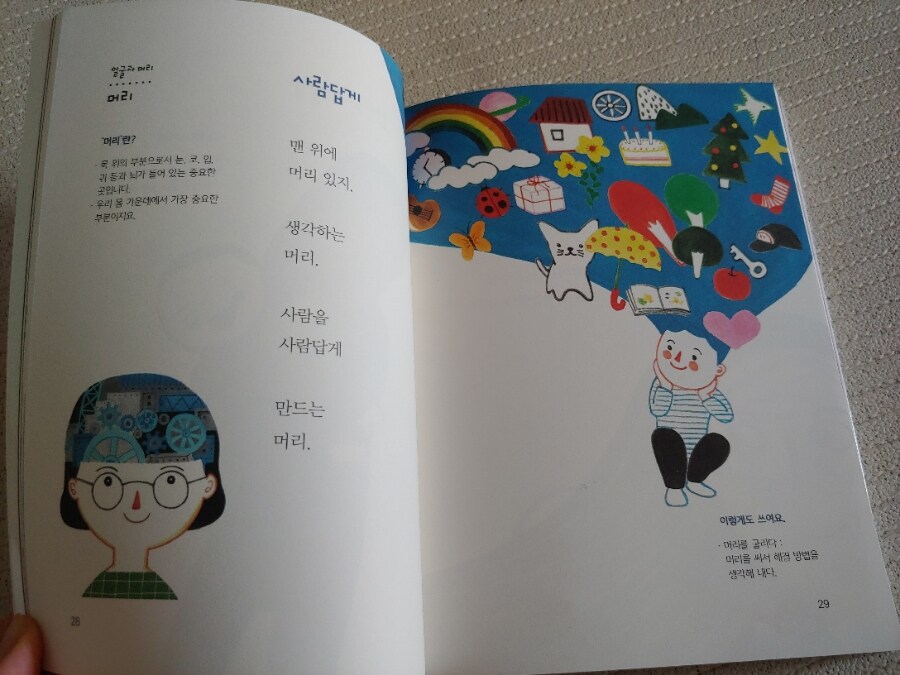 얼굴과 머리
머리
'머리'란?
· 목 위의 부분으로서 눈, 코, 입,
귀 등과 뇌가 들어 있는 중요한
곳입니다.
· 우리 몸 가운데에서 가장 중요한
부분이지요.
사람답게
맨 위에
머리 있지.
생각하는
머리.
사람을
사람답게
만드는
머리.
28
이렇게도 쓰여요.
· 머리를 굴리다 :
머리를 써서 해결 방법을
생각해 내다.
29